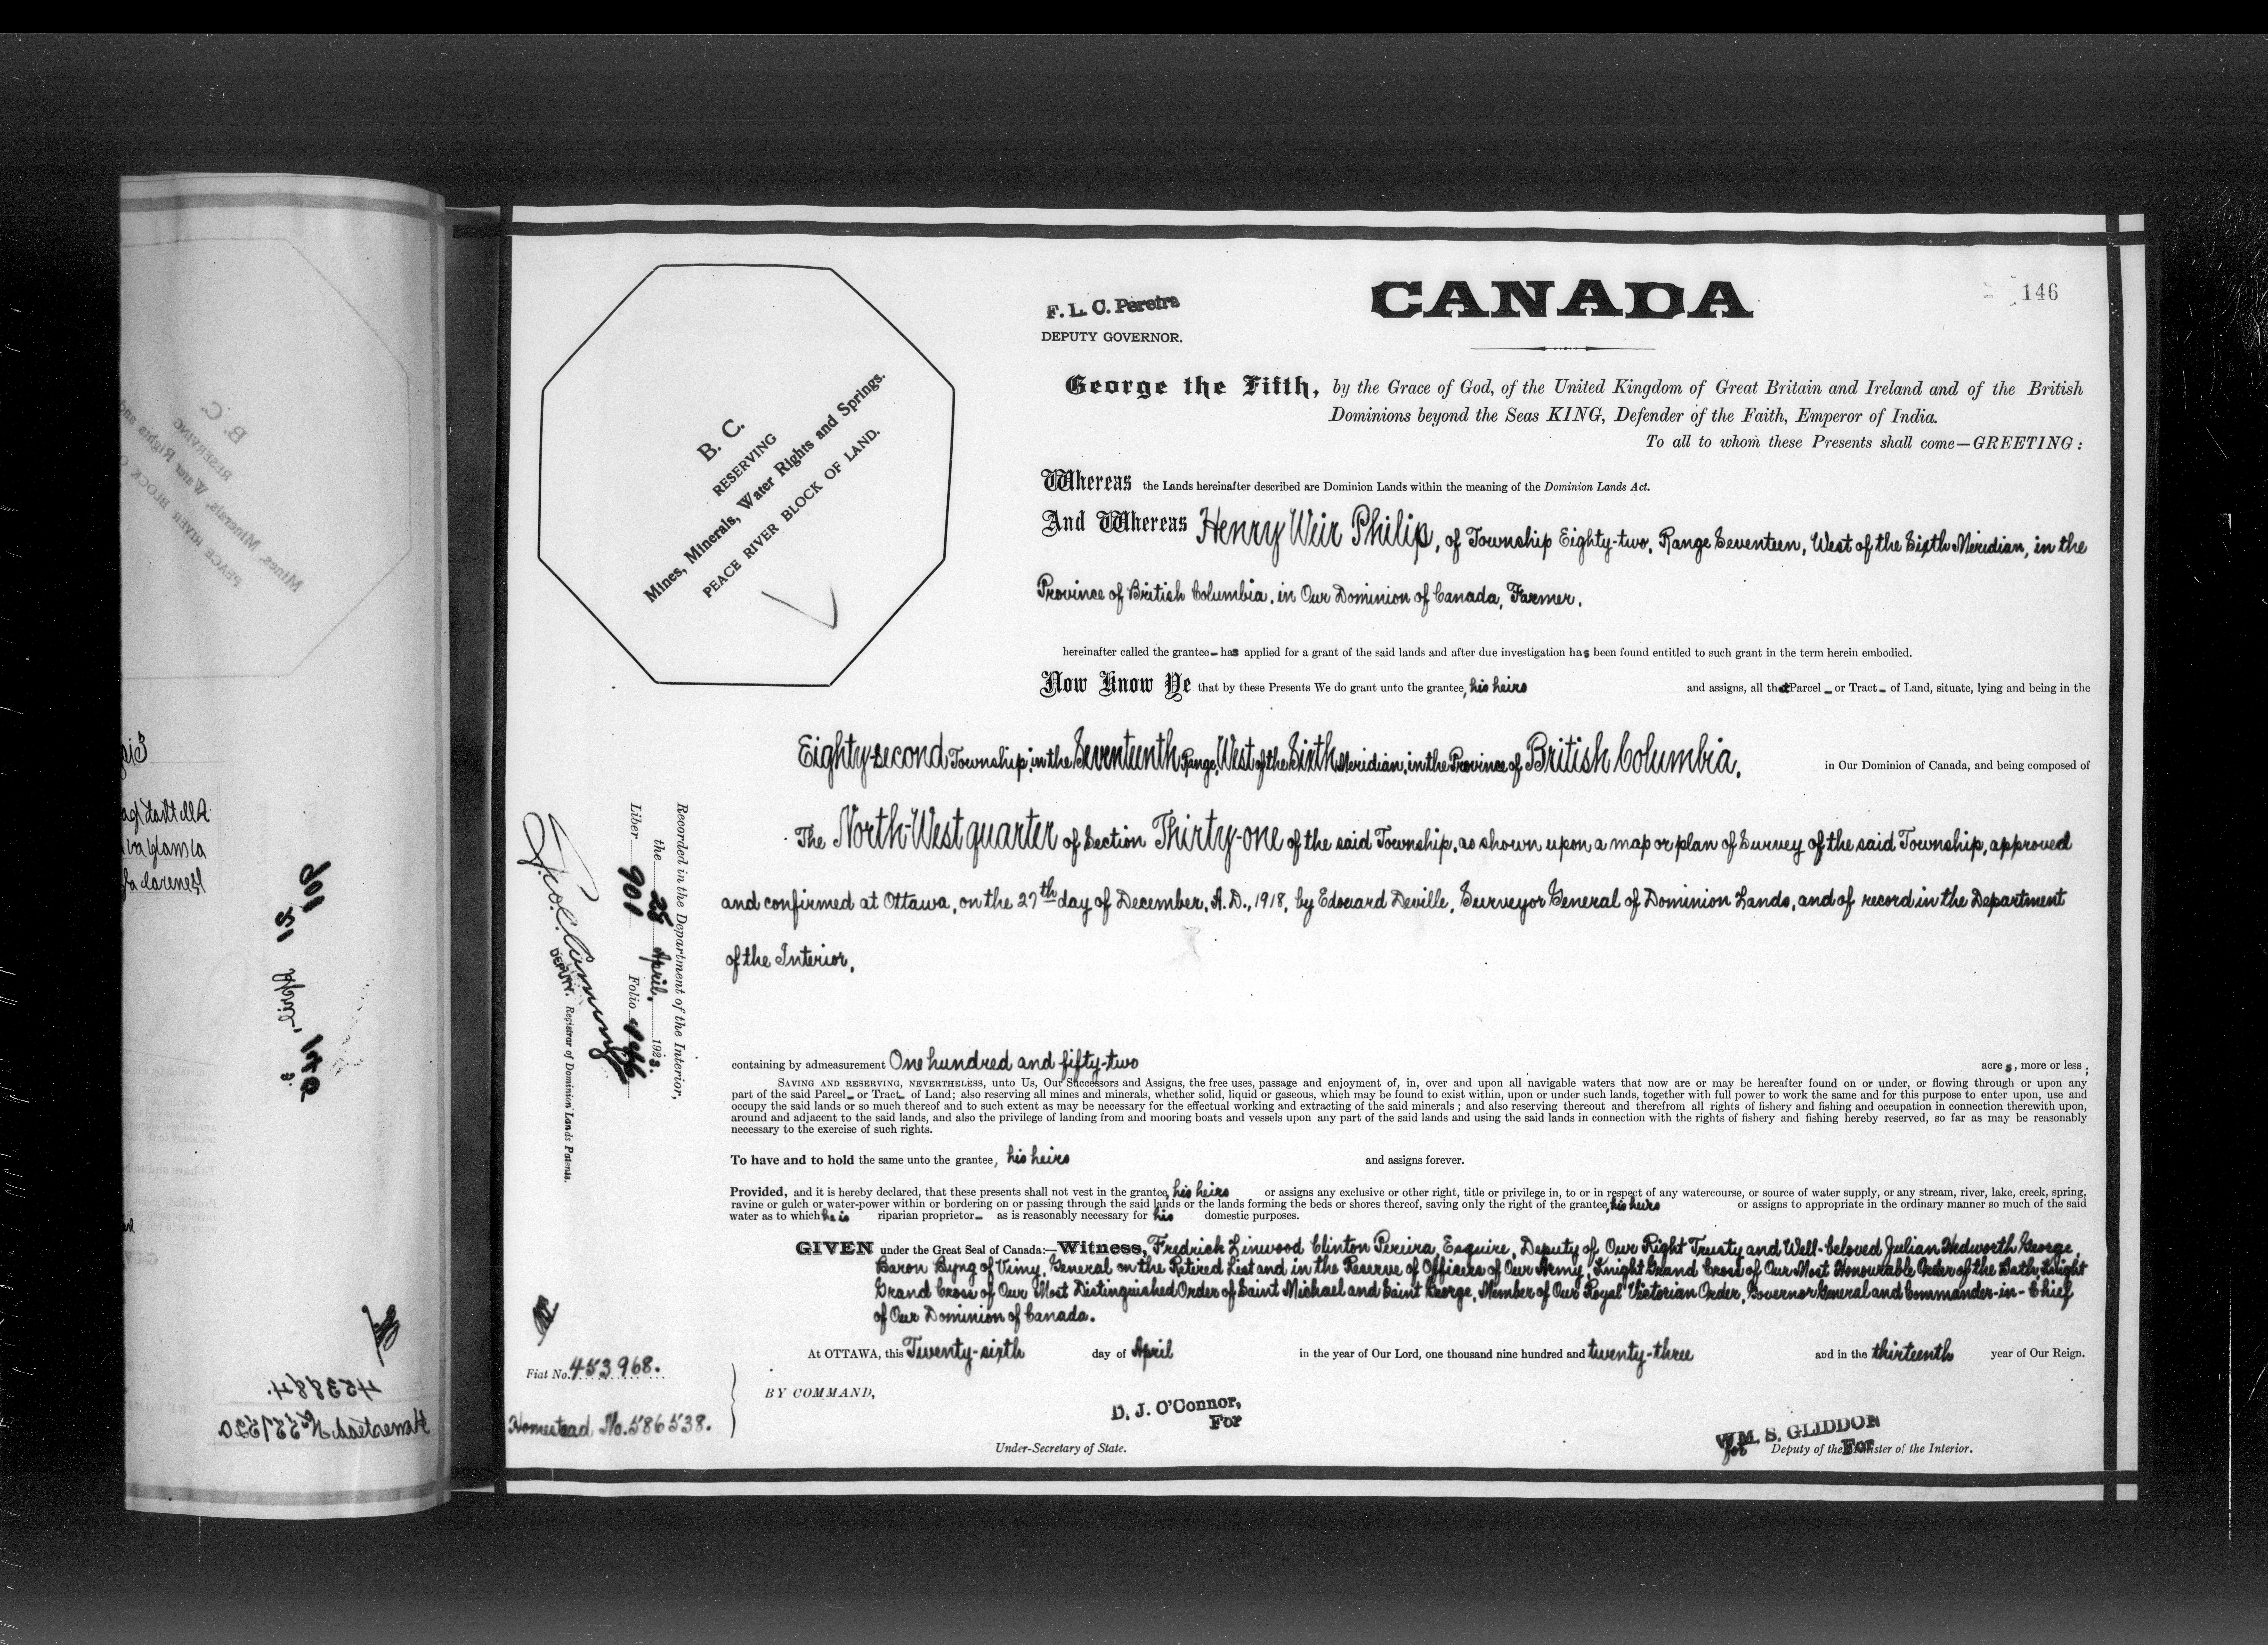 CANADA
146
F. L. C. Pereira
DEPUTY GOVERNOR.
George the Fifth, by the Grace of God, of the United Kingdom of Great Britain and Ireland and of the British
Dominions beyond the Seas KING, Defender of the Faith, Emperor of India.
To all to whom these Presents shall come—GREETING:
B. C.
RESERVING
Mines, Minerals, Water Rights and Springs.
PEACE RIVER BLOCK OF LAND.
Whereas the Lands hereinafter described are Dominion Lands within the meaning of the Dominion Lands Act.
And Whereas Henry Weir Philip, of Township Eighty-two, Range Seventeen, West of the Sixth Meridian, in the
Province of British Columbia, in Our Dominion of Canada, Farmer.
hereinafter called the grantee - has applied for a grant of the said lands and after due investigation has been found entitled to such grant in the term herein embodied.
Now Know Ye that by these Presents We do grant unto the grantee, his heirs and assigns, all that Parcel - or Tract - of Land, situate, lying and being in the
Eighty-second Township, in the Seventeenth Range, West of the Sixth Meridian, in the Province of British Columbia, in Our Dominion of Canada, and being composed of
The North-West quarter of Section Thirty-one of the said Township, as shown upon a map or plan of Survey of the said Township, approved
and confirmed at Ottawa, on the 27th day of December, A. D., 1918, by Edouard Deville, Surveyor General of Dominion Lands, and of record in the Department
of the Interior,
Recorded in the Department of the Interior,
the 25 April, 1923.
Liber 901 Folio 146
DEPUTY. Registrar of Dominion Lands Patents.
containing by admeasurement One hundred and fifty-two acres, more or less;
SAVING AND RESERVING, NEVERTHELESS, unto Us, Our Successors and Assigns, the free uses, passage and enjoyment of, in, over and upon all navigable waters that now are or may be hereafter found on or under, or flowing through or upon any
part of the said Parcel - or Tract - of Land; also reserving all mines and minerals, whether solid, liquid or gaseous, which may be found to exist within, upon or under such lands, together with full power to work the same and for this purpose to enter upon, use and
occupy the said lands or so much thereof and to such extent as may be necessary for the effectual working and extracting of the said minerals; and also reserving thereout and therefrom all rights of fishery and fishing and occupation in connection therewith upon,
around and adjacent to the said lands, and also the privilege of landing from and mooring boats and vessels upon any part of the said lands and using the said lands in connection with the rights of fishery and fishing hereby reserved, so far as may be reasonably
necessary to the exercise of such rights.
To have and to hold the same unto the grantee, his heirs and assigns forever.
Provided, and it is hereby declared, that these presents shall not vest in the grantee, his heirs or assigns any exclusive or other right, title or privilege in, to or in respect of any watercourse, or source of water supply, or any stream, river, lake, creek, spring,
ravine or gulch or water-power within or bordering on or passing through the said lands or the lands forming the beds or shores thereof, saving only the right of the grantee, his heirs or assigns to appropriate in the ordinary manner so much of the said
water as to which he is riparian proprietor - as is reasonably necessary for his domestic purposes.
GIVEN under the Great Seal of Canada:—Witness, Fredrick Linwood Clinton Pereira, Esquire, Deputy of Our Right Trusty and Well-beloved Julian Hedworth George,
Baron Byng of Vimy, General on the Retired List and in the Reserve of Officers of Our Army, Knight Grand Cross of Our Most Honourable Order of the Bath, Knight
Grand Cross of Our Most Distinguished Order of Saint Michael and Saint George, Member of Our Royal Victorian Order, Governor General and Commander-in-Chief
of Our Dominion of Canada.
At OTTAWA, this Twenty-sixth day of April in the year of Our Lord, one thousand nine hundred and twenty-three and in the thirteenth year of Our Reign.
Fiat No. 453968.
Homestead No. 586538.
BY COMMAND,
D. J. O'Connor,
For
Under-Secretary of State.
WM. S. GLIDDON
For
for Deputy of the Minister of the Interior.